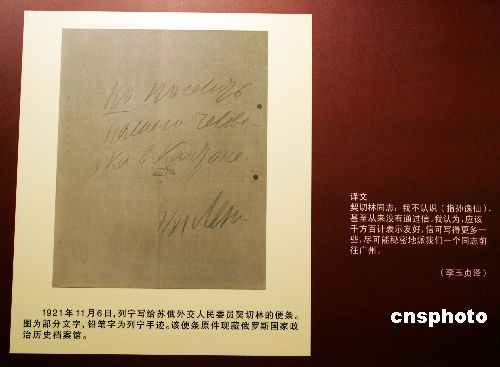 но послать
нашего челове-
ка в Кантоне.
1921年11月6日,列宁写给苏俄外交人民委员契切林的便条。
图为部分文字,铅笔字为列宁手迹。该便条原件现藏俄罗斯国家政
治历史档案馆。
译文
契切林同志:我不认识(指孙逸仙),
甚至从来没有通过信,我认为,应该
千方百计表示友好,信可写得更多一
些,尽可能秘密地派我们一个同志前
往广州。
(李玉贞译)
cnsphoto